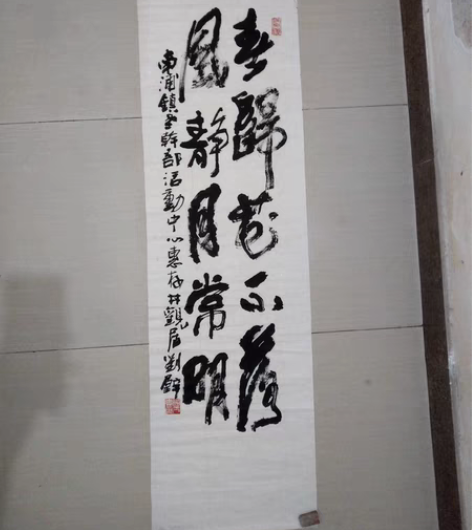 春歸花不落
風靜月常明
南浦鎮老幹部活動中心惠存井觀居劉